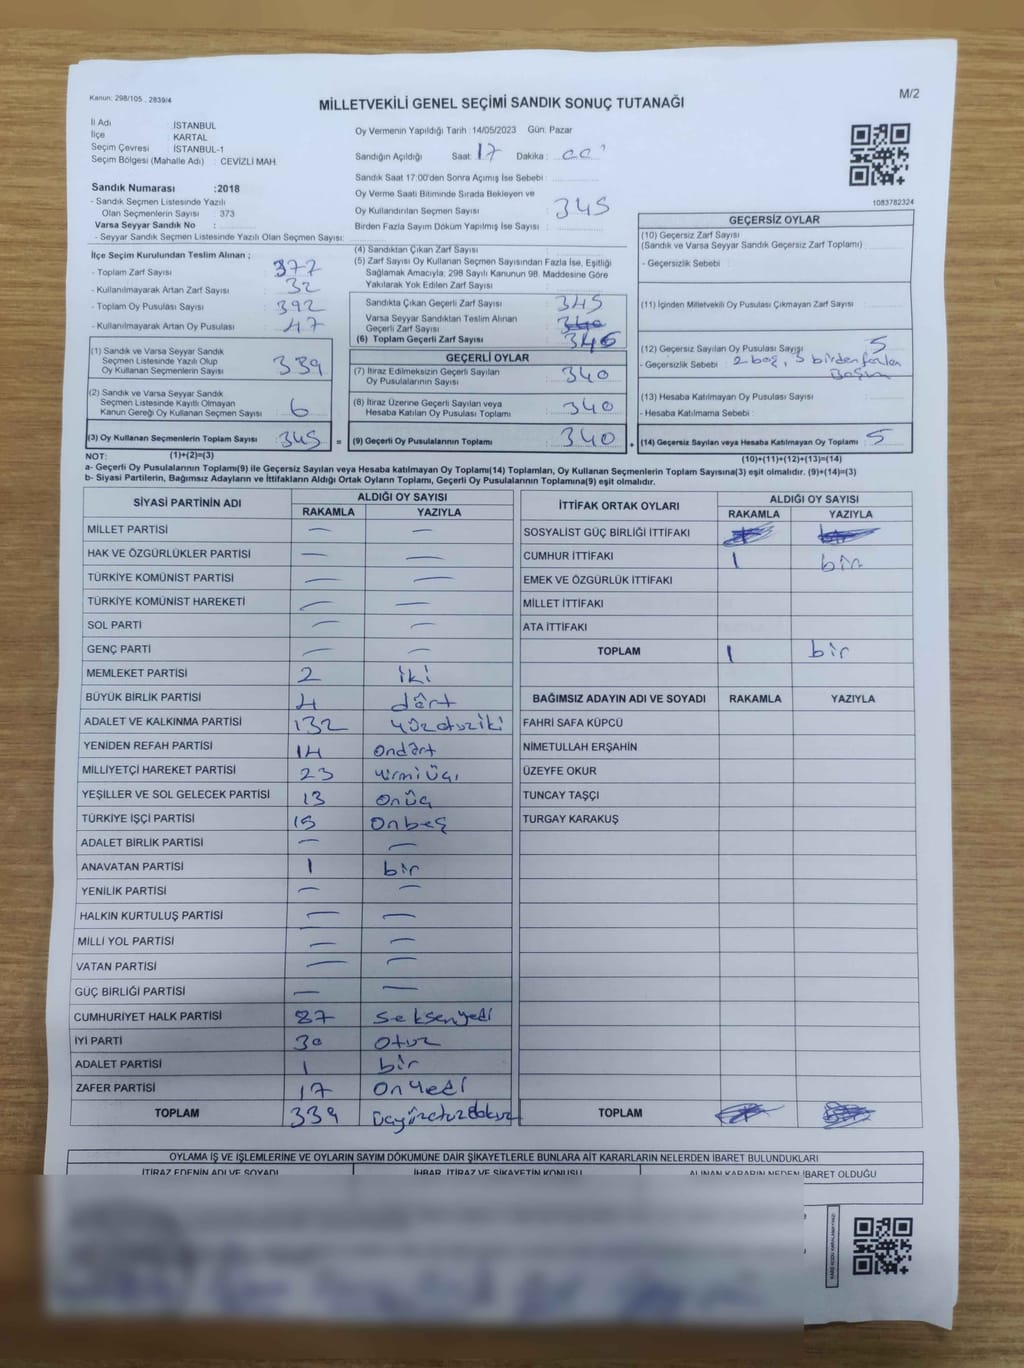 Kanun: 298/105 , 2839/4
M/2
MİLLETVEKİLİ GENEL SEÇİMİ SANDIK SONUÇ TUTANAĞI
İl Adı : İSTANBUL
İlçe : KARTAL
Seçim Çevresi : İSTANBUL-1
Seçim Bölgesi (Mahalle Adı) : CEVİZLİ MAH.
Sandık Numarası :2018
- Sandık Seçmen Listesinde Yazılı
Olan Seçmenlerin Sayısı : 373
Varsa Seyyar Sandık No :
- Seyyar Sandık Seçmen Listesinde Yazılı Olan Seçmen Sayısı:
Oy Vermenin Yapıldığı Tarih :14/05/2023 Gün: Pazar
Sandığın Açıldığı Saat: 17 Dakika : 00
Sandık Saat 17:00'den Sonra Açımış İse Sebebi :
Oy Verme Saati Bitiminde Sırada Bekleyen ve
Oy Kullandırılan Seçmen Sayısı : 345
Birden Fazla Sayım Döküm Yapılmış İse Sayısı :
1083782324
İlçe Seçim Kurulundan Teslim Alınan ;
- Toplam Zarf Sayısı : 377
- Kullanılmayarak Artan Zarf Sayısı : 32
- Toplam Oy Pusulası Sayısı : 392
- Kullanılmayarak Artan Oy Pusulası : 47
(1) Sandık ve Varsa Seyyar Sandık
Seçmen Listesinde Yazılı Olup
Oy Kullanan Seçmenlerin Sayısı : 339
(2) Sandık ve Varsa Seyyar Sandık
Seçmen Listesinde Kayıtlı Olmayan
Kanun Gereği Oy Kullanan Seçmen Sayısı : 6
(3) Oy Kullanan Seçmenlerin Toplam Sayısı : 345 =
(4) Sandıktan Çıkan Zarf Sayısı :
(5) Zarf Sayısı Oy Kullanan Seçmen Sayısından Fazla İse, Eşitliği
Sağlamak Amacıyla; 298 Sayılı Kanunun 98. Maddesine Göre
Yakılarak Yok Edilen Zarf Sayısı :
Sandıkta Çıkan Geçerli Zarf Sayısı : 345
Varsa Seyyar Sandıktan Teslim Alınan
Geçerli Zarf Sayısı :
(6) Toplam Geçerli Zarf Sayısı :
GEÇERLİ OYLAR
(7) İtiraz Edilmeksizin Geçerli Sayılan
Oy Pusulalarının Sayısı : 340
(8) İtiraz Üzerine Geçerli Sayılan veya
Hesaba Katılan Oy Pusulası Toplamı : 340
(9) Geçerli Oy Pusulalarının Toplamı : 340 +
GEÇERSİZ OYLAR
(10) Geçersiz Zarf Sayısı
(Sandık ve Varsa Seyyar Sandık Geçersiz Zarf Toplamı) :
- Geçersizlik Sebebi :
(11) İçinden Milletvekili Oy Pusulası Çıkmayan Zarf Sayısı :
(12) Geçersiz Sayılan Oy Pusulası Sayısı : 5
- Geçersizlik Sebebi : 2 boş, 3 birden fazla
Basım
(13) Hesaba Katılmayan Oy Pusulası Sayısı :
- Hesaba Katılmama Sebebi :
(14) Geçersiz Sayılan veya Hesaba Katılmayan Oy Toplamı : 5
NOT: (1)+(2)=(3)
(10)+(11)+(12)+(13)=(14)
a- Geçerli Oy Pusulalarının Toplamı(9) ile Geçersiz Sayılan veya Hesaba katılmayan Oy Toplamı(14) Toplamları, Oy Kullanan Seçmenlerin Toplam Sayısına(3) eşit olmalıdır. (9)+(14)=(3)
b- Siyasi Partilerin, Bağımsız Adayların ve İttifakların Aldığı Ortak Oyların Toplamı, Geçerli Oy Pusulalarının Toplamına(9) eşit olmalıdır.
SİYASİ PARTİNİN ADI ALDIĞI OY SAYISI
RAKAMLA YAZIYLA
MİLLET PARTİSİ — —
HAK VE ÖZGÜRLÜKLER PARTİSİ — —
TÜRKİYE KOMÜNİST PARTİSİ — —
TÜRKİYE KOMÜNİST HAREKETİ — —
SOL PARTİ — —
GENÇ PARTİ — —
MEMLEKET PARTİSİ 2 iki
BÜYÜK BİRLİK PARTİSİ 4 dört
ADALET VE KALKINMA PARTİSİ 132 yüzotuziki
YENİDEN REFAH PARTİSİ 14 ondört
MİLLİYETÇİ HAREKET PARTİSİ 23 yirmiüç
YEŞİLLER VE SOL GELECEK PARTİSİ 13 onüç
TÜRKİYE İŞÇİ PARTİSİ 15 onbeş
ADALET BİRLİK PARTİSİ — —
ANAVATAN PARTİSİ 1 bir
YENİLİK PARTİSİ — —
HALKIN KURTULUŞ PARTİSİ — —
MİLLİ YOL PARTİSİ — —
VATAN PARTİSİ — —
GÜÇ BİRLİĞİ PARTİSİ — —
CUMHURİYET HALK PARTİSİ 87 seksenyedi
İYİ PARTİ 30 otuz
ADALET PARTİSİ 1 bir
ZAFER PARTİSİ 17 onyedi
TOPLAM 339 üçyüzotuzdokuz
İTTİFAK ORTAK OYLARI ALDIĞI OY SAYISI
RAKAMLA YAZIYLA
SOSYALİST GÜÇ BİRLİĞİ İTTİFAKI
CUMHUR İTTİFAKI 1 bir
EMEK VE ÖZGÜRLÜK İTTİFAKI
MİLLET İTTİFAKI
ATA İTTİFAKI
TOPLAM 1 bir
BAĞIMSIZ ADAYIN ADI VE SOYADI RAKAMLA YAZIYLA
FAHRİ SAFA KÜPCÜ
NİMETULLAH ERŞAHİN
ÜZEYFE OKUR
TUNCAY TAŞÇI
TURGAY KARAKUŞ
TOPLAM
OYLAMA İŞ VE İŞLEMLERİNE VE OYLARIN SAYIM DÖKÜMÜNE DAİR ŞİKAYETLERLE BUNLARA AİT KARARLARIN NELERDEN İBARET BULUNDUKLARI
İTİRAZ EDENİN ADI VE SOYADI İHBAR, İTİRAZ VE ŞİKAYETİN KONUSU ALINAN KARARIN NEDEN İBARET OLDUĞU